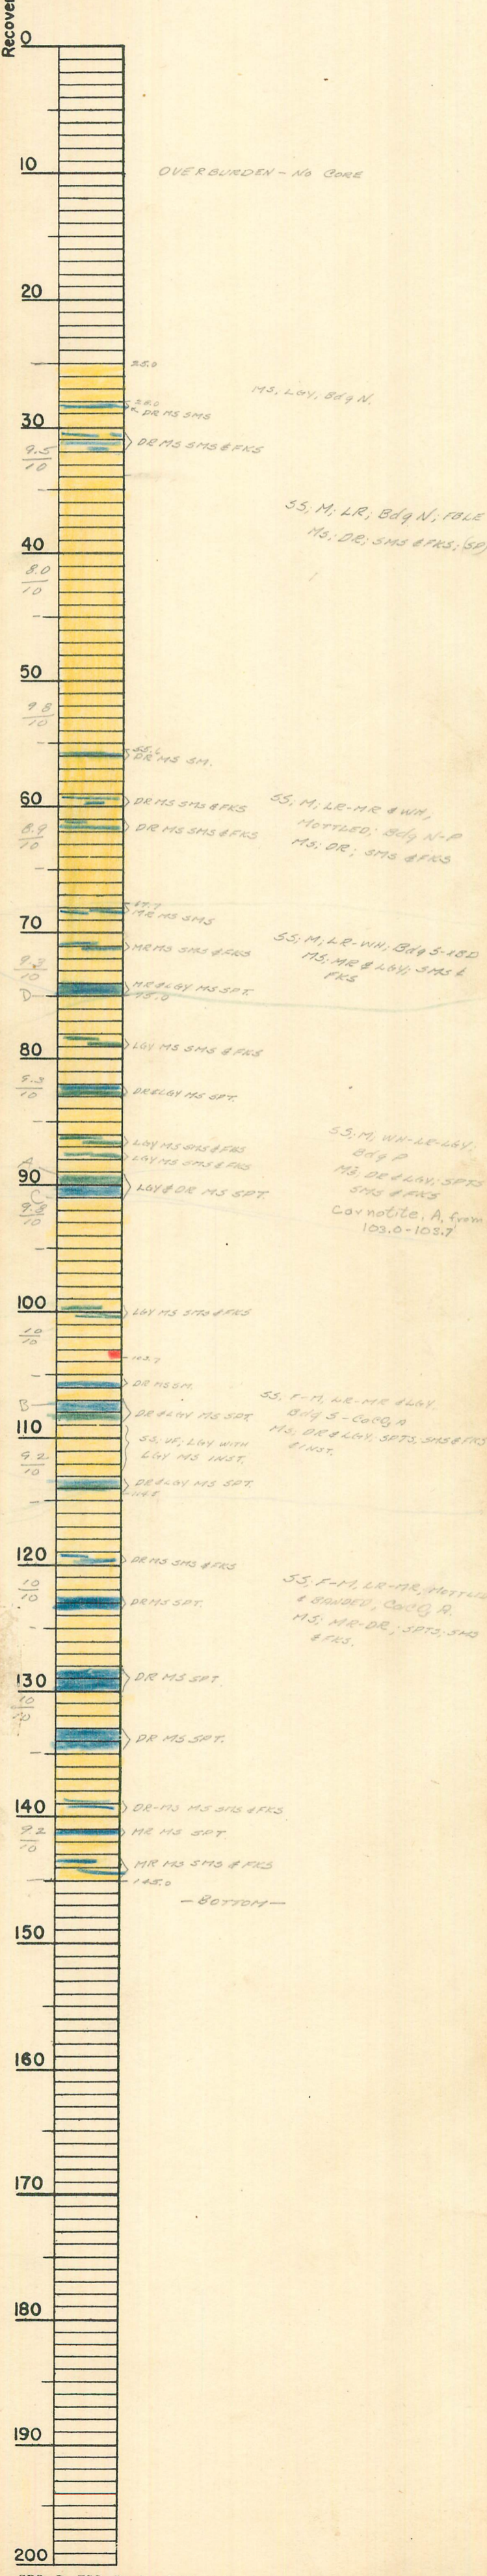 Recover
0
10
OVERBURDEN - NO CORE
20
25.0
MS, LGY, Bdg N.
28.0
DR MS SMS
30
DR MS SMS & FKS
9.5
10
SS; M; LR; Bdg N; FBLE
MS; DR; SMS & FKS; (SP)
40
8.0
10
50
9.8
10
55.6
DR MS SM.
60
DR MS SMS & FKS
SS, M, LR-MR & WH,
MOTTLED; Bdg N-P
MS; DR; SMS & FKS
8.9
10
DR MS SMS & FKS
67.7
MR MS SMS
70
MR MS SMS & FKS
SS; M; LR-WH; Bdg S-
MS; MR & LGY; SMS &
FKS
9.3
10
D
MR & LGY MS SPT.
75.0
LGY MS SMS & FKS
80
9.3
10
DR & LGY MS SPT.
LGY MS SMS & FKS
LGY MS SMS & FKS
SS, M, WH-LR-LGY,
Bdg P
MS; DR & LGY; SPTS
SMS & FKS
Carnotite, A, from
103.0-103.7
A
90
C
LGY & DR MS SPT.
9.8
10
100
LGY MS SMS & FKS
10
10
103.7
DR MS SM.
B
DR & LGY MS SPT.
SS, F-M, LR-MR & LGY
Bdg S - CaCO3 A
MS; DR & LGY, SPTS, SMS & FKS
& INST.
110
SS, VF, LGY WITH
LGY MS INST.
9.2
10
DR & LGY MS SPT.
120
DR MS SMS & FKS
10
10
DR MS SPT.
SS, F-M, LR-MR, MOTTLED
& BANDED, CaCO3 A.
MS; MR-DR; SPTS, SMS
& FKS.
130
DR MS SPT.
10
10
DR MS SPT.
140
DR-MS MS SMS & FKS
9.2
10
MR MS SPT.
MR MS SMS & FKS
145.0
- BOTTOM -
150
160
170
180
190
200